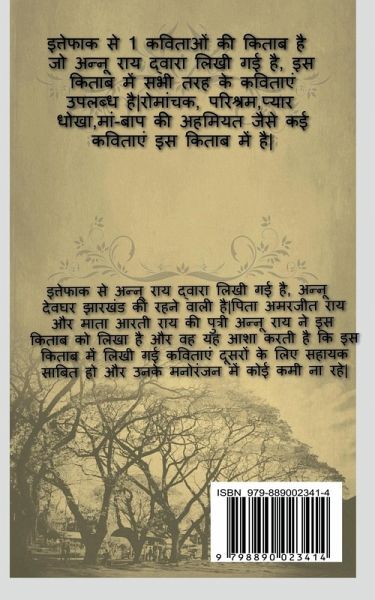 इत्तेफाक से 1 कविताओं की किताब है
जो अन्नू राय द्वारा लिखी गई है, इस
किताब में सभी तरह के कविताएं
उपलब्ध है|रोमांचक, परिश्रम,प्यार
धोखा,मां-बाप की अहमियत जैसे कई
कविताएं इस किताब में है|
इत्तेफाक से अन्नू राय द्वारा लिखी गई है, अन्नू
देवघर झारखंड की रहने वाली है|पिता अमरजीत राय
और माता आरती राय की पुत्री अन्नू राय ने इस
किताब को लिखा है और वह यह आशा करती है कि इस
किताब में लिखी गई कविताएं दूसरों के लिए सहायक
साबित हो और उनके मनोरंजन में कोई कमी ना रहे|
ISBN 979-889002341-4
9 798890 023414